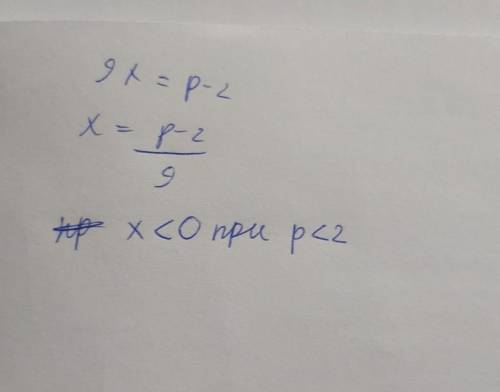 9x = p-2
x = p-2
9
x<0 при p<2